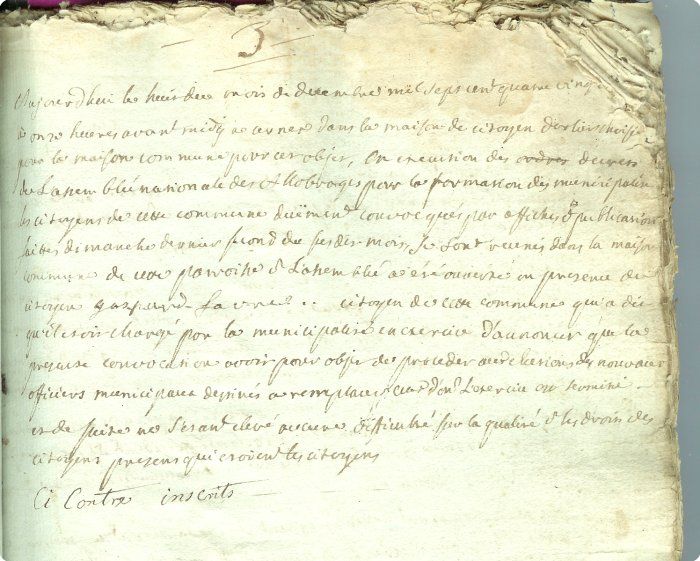 3
Aujourd'hui le huit du mois de decembre mil sept cent quatre vingt
à onze heures avant midy a cernex dans la maison de citoyen
pour la maison commune pour cet objet, En execution des ordres decrets
de L'assemblée nationale des Allobroges pour la formation des municipalité
les citoyens de cette commune duëment convoqués par affiches & publication
faites dimanche dernier second du susdit mois, se sont reunis dans la maison
commune de cette parroisse & L'assemblée a été ouverte en presence de
citoyen gaspard favre .. citoyen de cette commune qui a dit
qu'il etoit chargé par la municipalité en exercice d'annoncer que la
presente convocation avoit pour objet de proceder aux elections de nouveaux
officiers municipaux destinés a remplacer ceux dont L'exercice est terminé
et de suite ne s'etant elevé aucune difficulté sur la qualité & les droits des
citoyens presens qui etoient les citoyens
Ci Contre inscrits